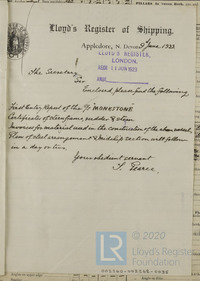 Lloyd's Register of Shipping.
Appledore, N. Devon 9th June, 1923
LLOYD'S REGISTER,
LONDON.
RECD 11 JUN 1923
The Secretary
Sir
Enclosed please find the following
First Entry Report of the S/S "MONKSTONE"
Certificates of sternframe, rudder & steam
Invoices for material used in the construction of the above vessel.
Plan of elect arrangement & midship section will follow
in a day or two
Your obedient servant
J. Pearce
© 2020
Lloyd's Register
Foundation